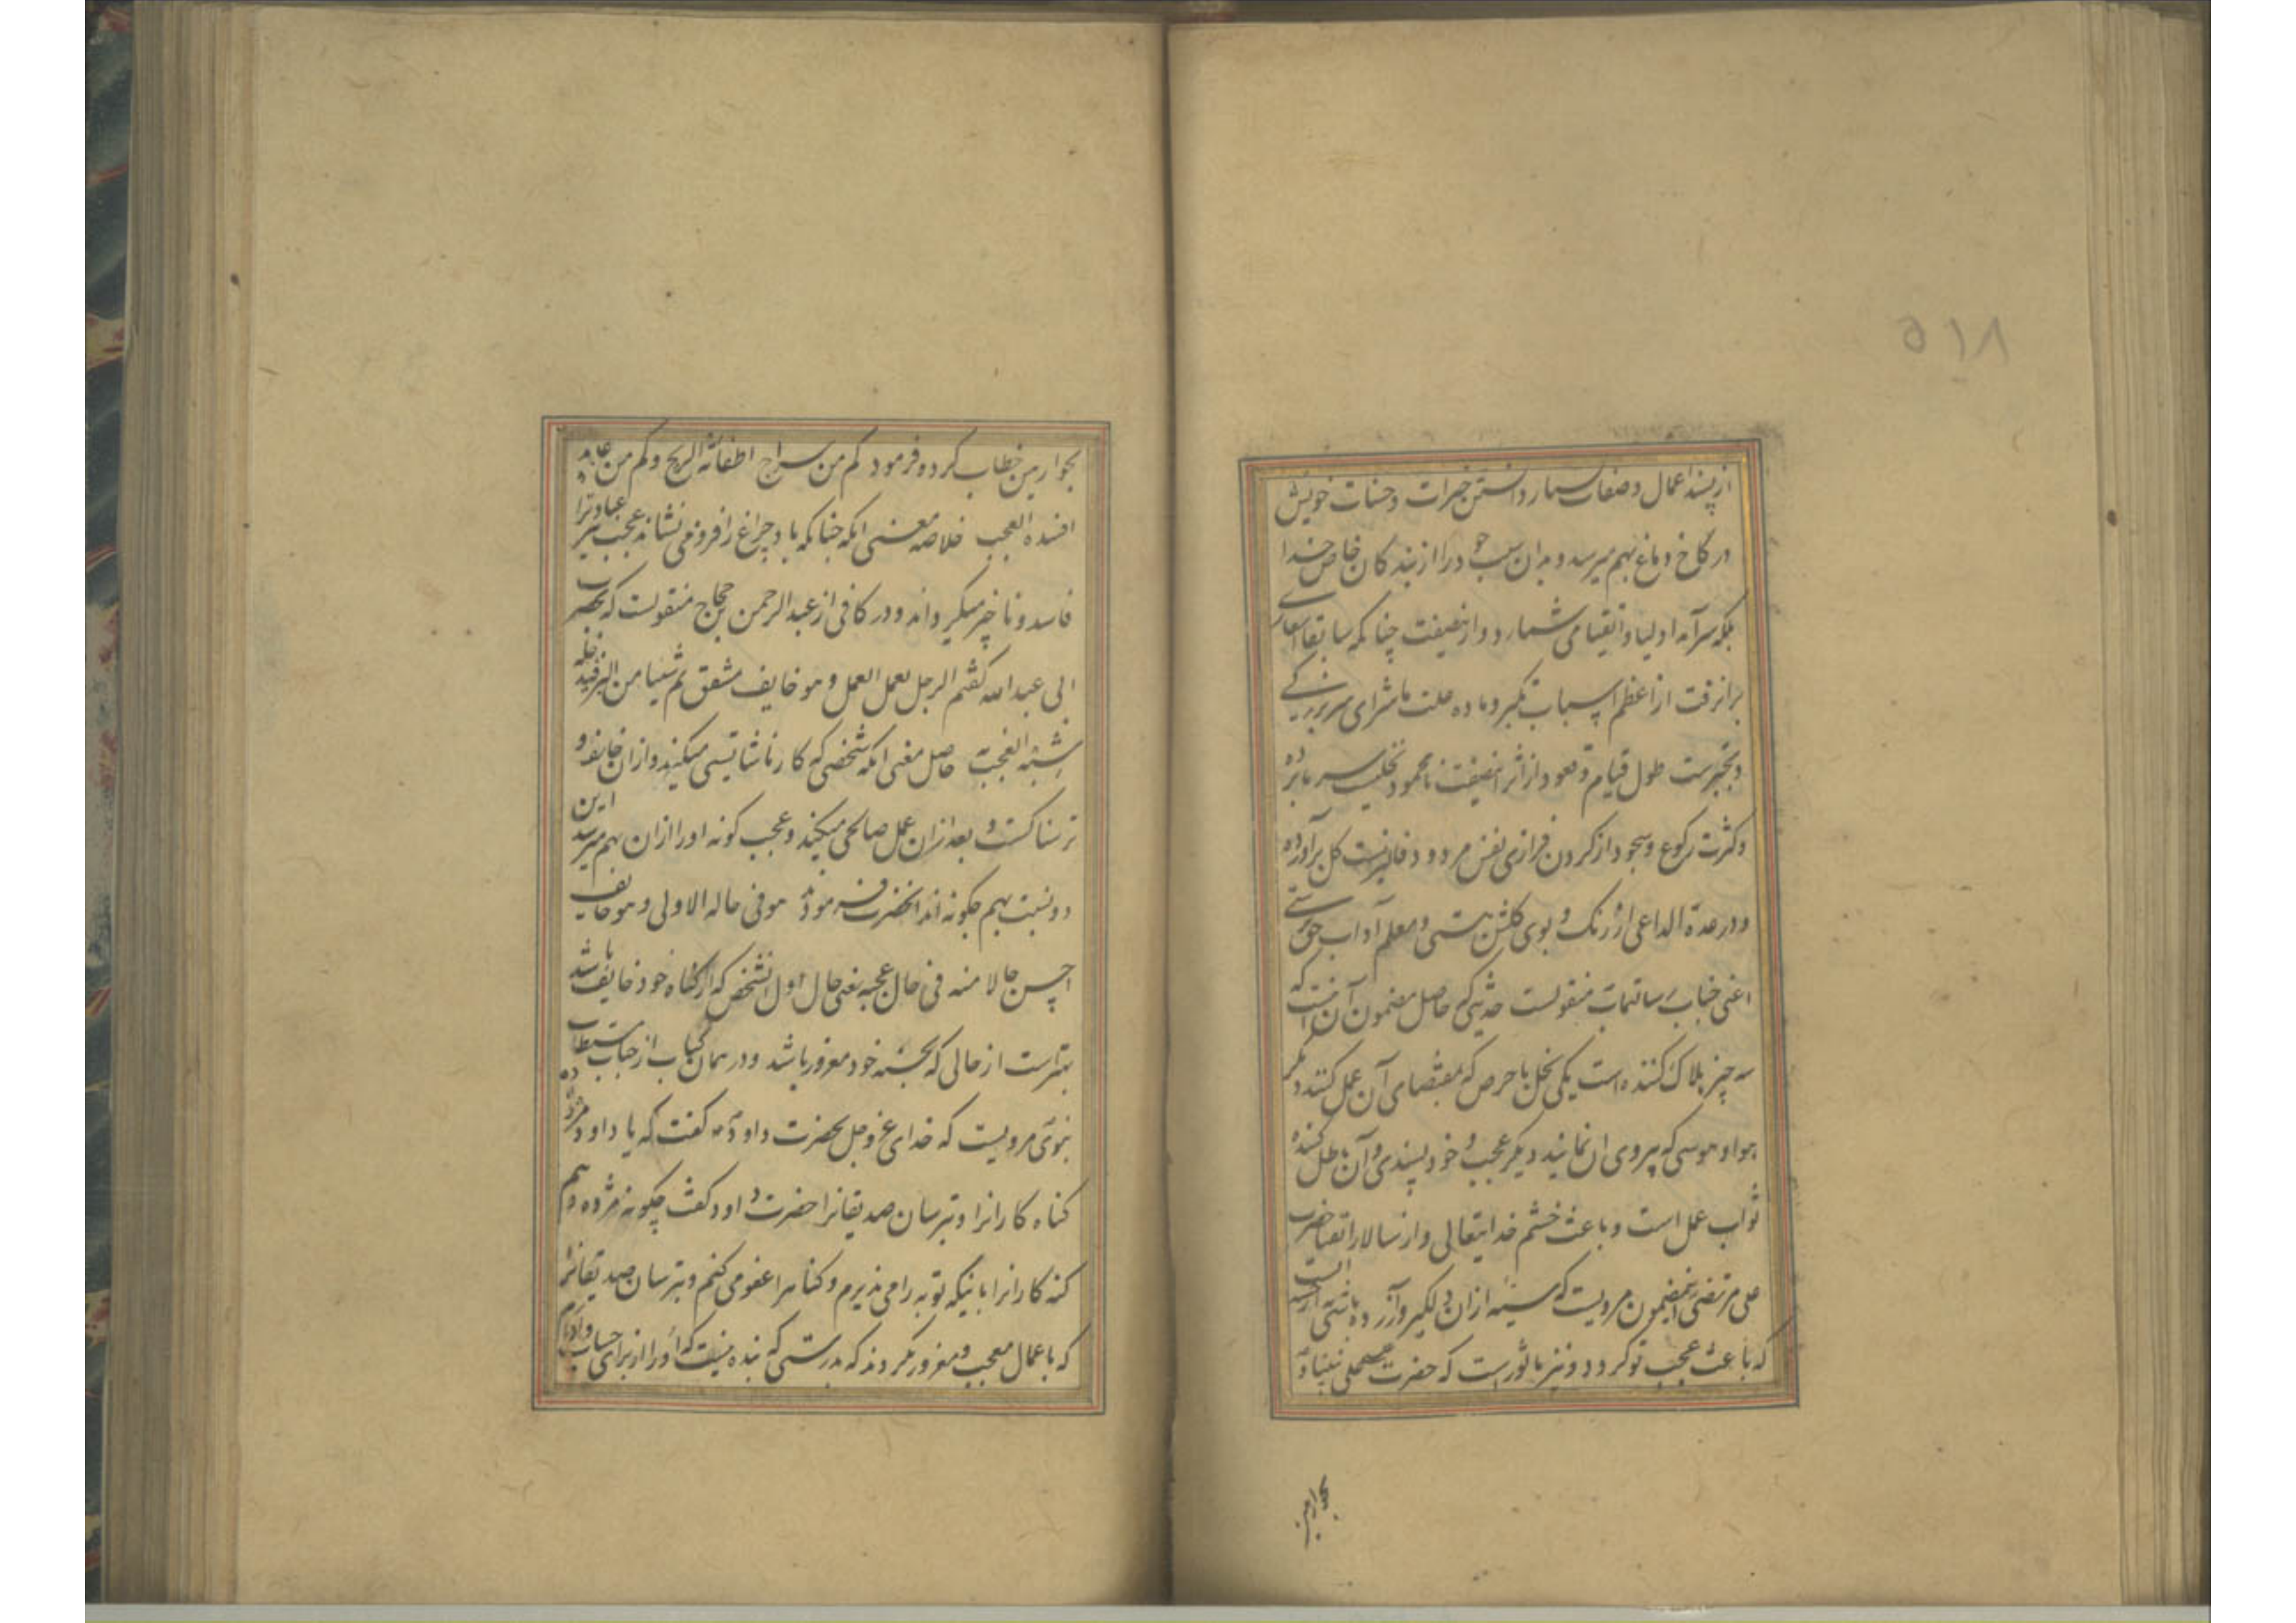 ۵۱۸
از پسند اعمال و صفات بسیار دانستن خیرات و حسنات خویش
در کاخ دماغ بهم میرسد و بدان سبب خود را از بندگان خاص خدا
بلکه سرآمد اولیا و اتقیا می شمارد و از نیصفت چنانکه سابقا
برانرفت از اعظم اسباب تکبر و ماده علت
و تجبرست طول قیام و قعود از اثر اینصفت نامحمود
و کثرت رکوع و سجود از کردن فرازی نفس مردود کل برآورده
و در عدة الداعی از رنک و بوی کلشن هستی و معلم آداب حق پرستی
اعنی جناب رسالتمآب منقولست حدیثی که حاصل مضمون آن اینست که
سه چیز هلاک کننده است یکی بخل یا حرص که بمقتضای آن عمل کنند دیگر
هوا و هوسی که پیروی ان نمایند دیکر عجب و خود پسندی و آن باطل کننده
ثواب عمل است و باعث خشم خدایتعالی و از سالار اتقیا حضرت
علی مرتضی اینمضمون مرویست که سیئه از ان دلکیر و آزرده باشی به از حسنه است
که باعث عجب تو کردد و نیز ماثورست که حضرت عیسی علی نبینا و
بحوارین
بحوارین خطاب کرد و فرمود کم من سراج اطفأته الریح و کم من عابد
افسده العجب خلاصه معنی انکه چنانکه باد چراغ را فرو می نشاند عجب نیز عبادترا
فاسد و ناچیز میکرداند و در کافی از عبد الرحمن بن حجاج منقولست که بحضرت
ابی عبد الله کفتم الرجل یعمل العمل و هو خایف مشفق ثم شیئا من البر فیدخله
شبه العجب به حاصل معنی انکه شخصی که کار ناشایستی میکند و از ان خایف و
ترسناکست و بعد از ان عمل صالحی میکند و عجب کونه او را از ان بهم میرسد این
دو نسبت بهم چکونه اند انحضرت فرمود هو فی حاله الاولی و هو خایف
احسن حالا منه فی حال عجبه یعنی حال اول انشخص که از کناه خود خایف باشد
بهترست از حالی که بحسنه خود مغرور باشد و در همان کتاب از جناب مستطاب
نبوی مرویست که خدای عز و جل بحضرت داود ع کفت که یا داود مژده ده
کناه کارانرا و بترسان صدیقانرا حضرت داود کفت چکونه مژده دهم
کنه کارانرا باینکه توبه را می پذیرم و کناهرا عفو می کنم و بترسان صدیقانرا
که باعمال معجب و مغرور نکردند که بدرستی که بنده نیست که او را از برای حساب